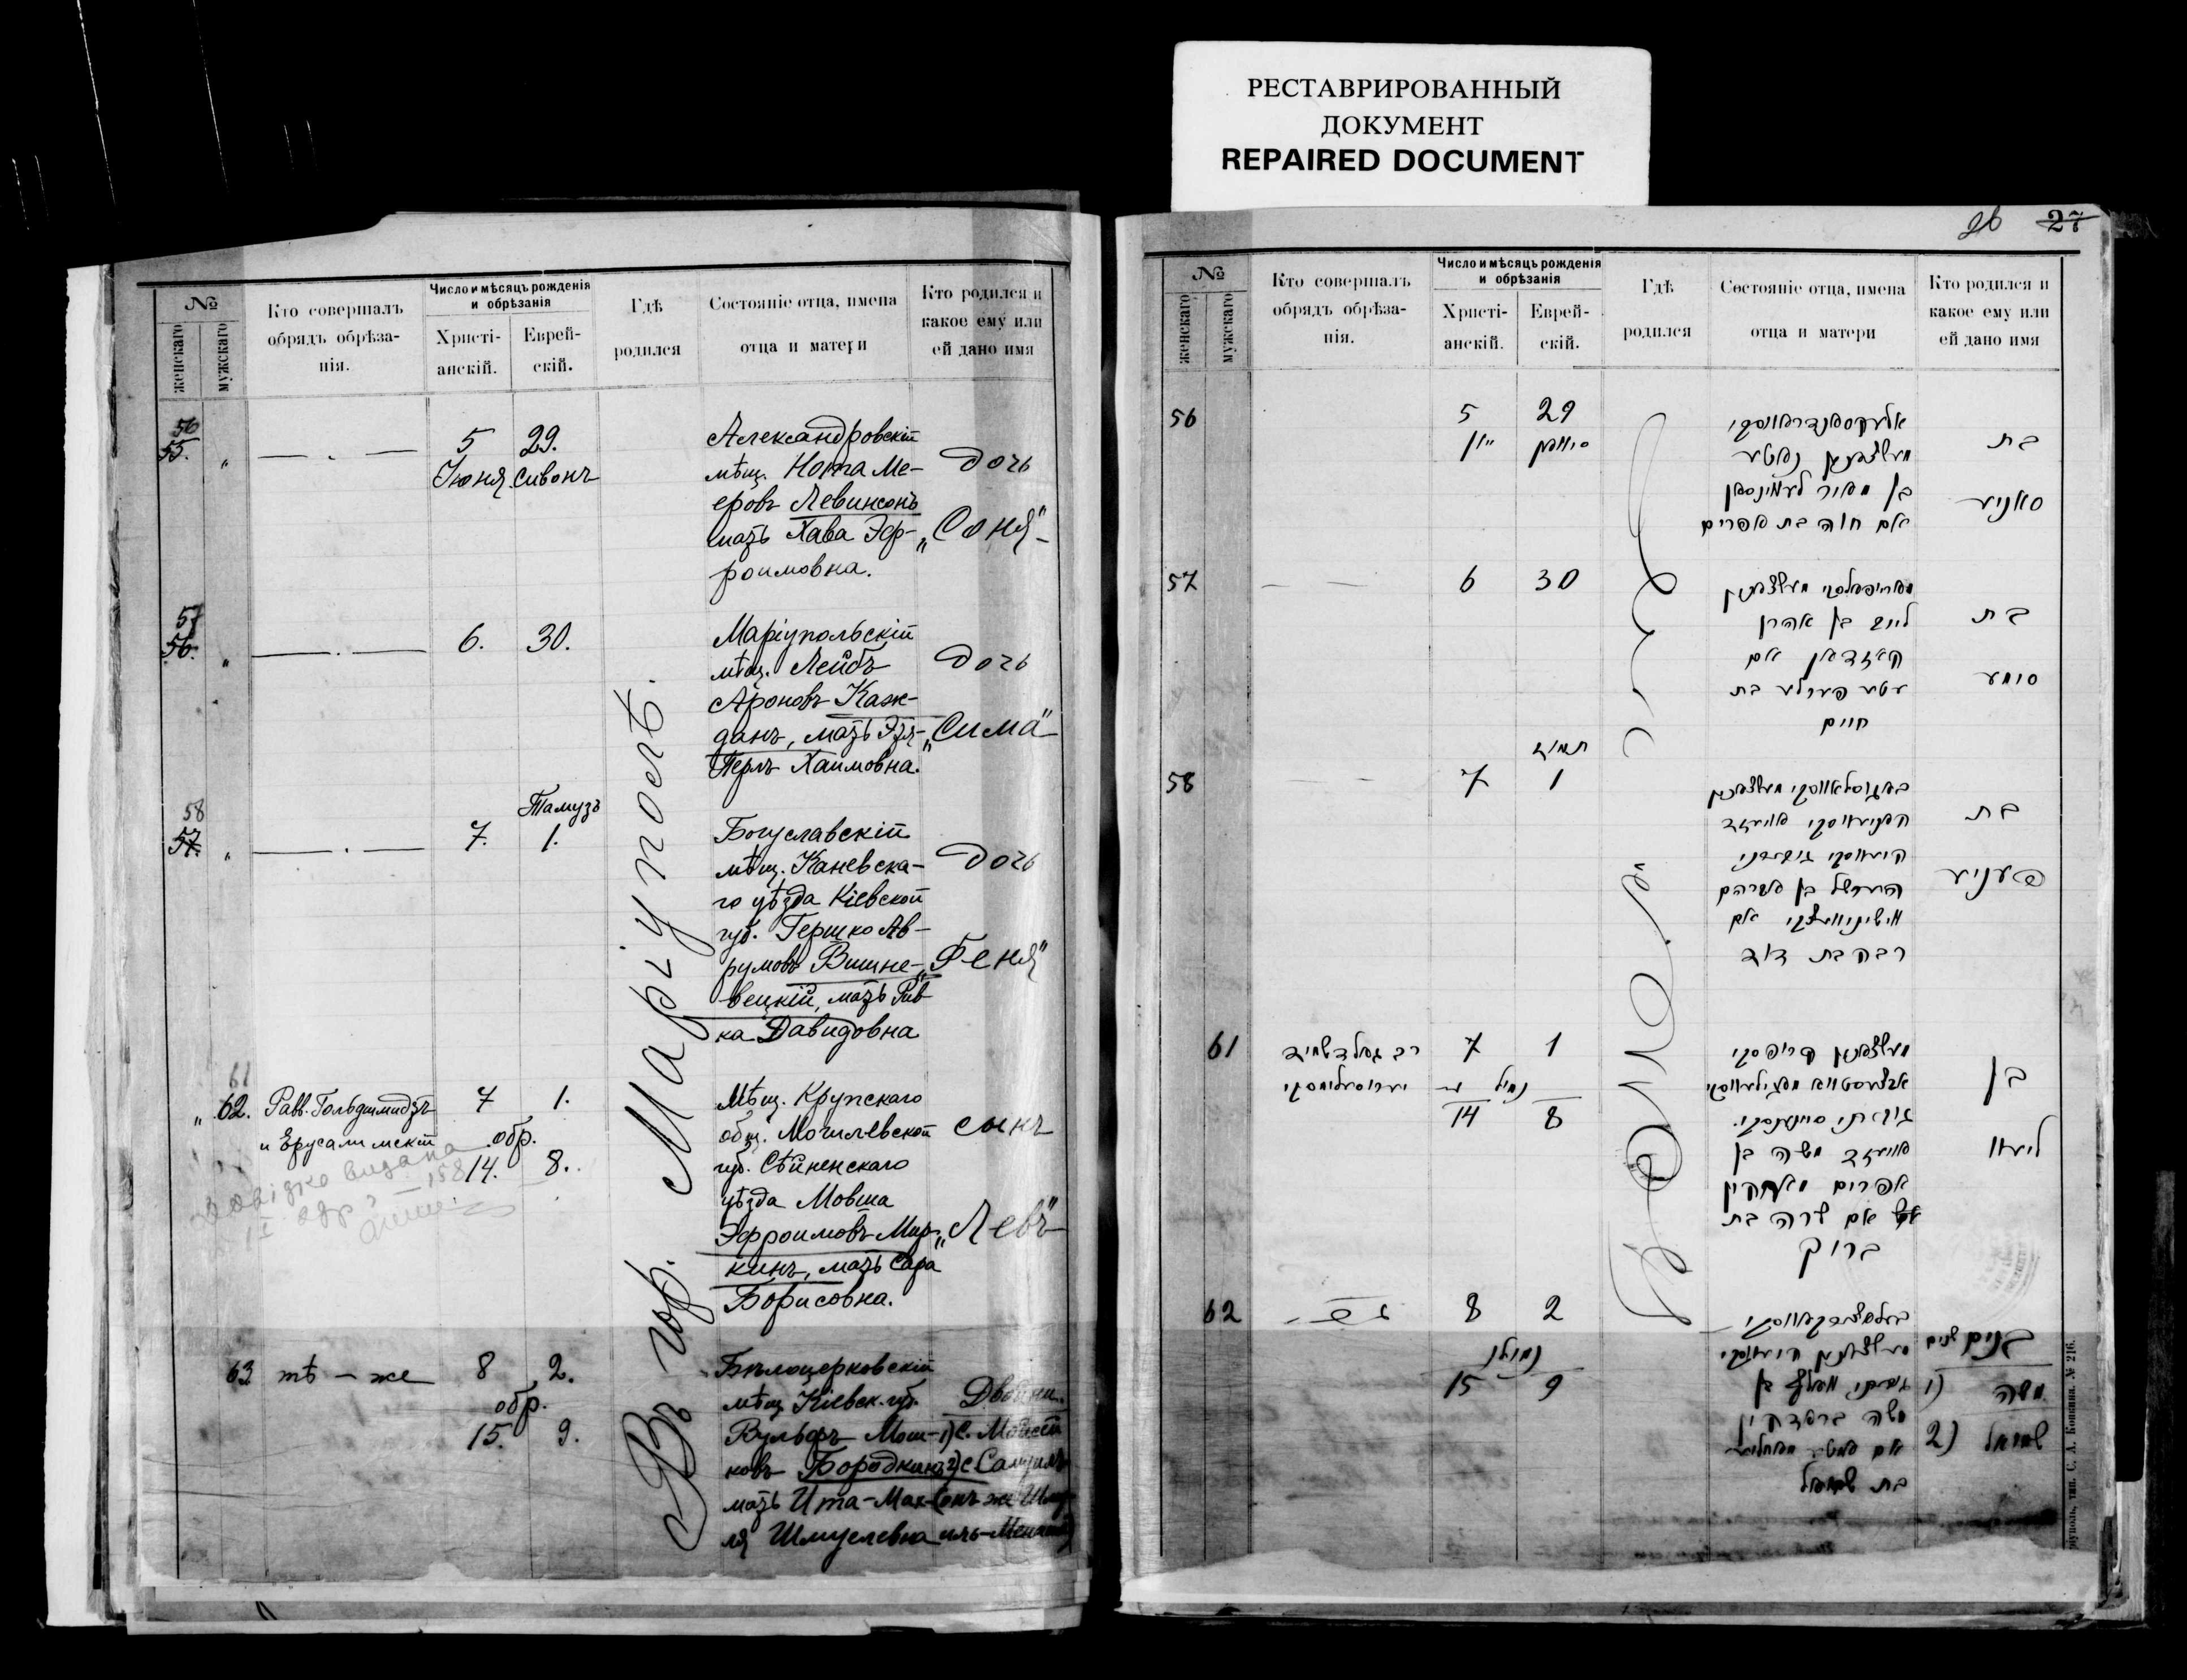 РЕСТАВРИРОВАННЫЙ
ДОКУМЕНТ
REPAIRED DOCUMENT
№
женскаго
мужскаго
Кто совершалъ
обрядъ обрѣза-
нія.
Число и мѣсяцъ рожденія
и обрѣзанія
Христі-
анскій.
Еврей-
скій.
Гдѣ
родился
Состояніе отца, имена
отца и матери
Кто родился и
какое ему или
ей дано имя
56
55. "
5 29.
Июня. Сивонъ
Александровскій
мѣщ. Нота Ме-
еровъ Левинсонъ
мать Хава Эф-
роимовна.
дочь
„Соня"
57
56. "
6. 30.
Маріупольскій
мѣщ. Лейбъ
Ароновъ Каж-
данъ, мать Этя-
Перль Хаимовна.
дочь
„Сима"
58
57. "
Тамузъ
7. 1.
Богуславскій
мѣщ. Каневска-
го уѣзда Кіевской
губ. Гершко Ав-
румовъ Вишне-
вецкій, мать Рив-
ка Давидовна
дочь
„Феня"
61
" 62.
Равв. Гольдшмидтъ
и Ерусалимскій
7 1.
обр.
14. 8.
Мѣщ. Крупскаго
общ. Могилевской
губ. Сѣнненскаго
уѣзда Мовша
Эфроимовъ Мир-
кинъ, мать Сара
Борисовна.
сынъ
„Левъ"
63
тѣ - же
8 2.
обр.
15. 9.
Бѣлоцерковскій
мѣщ. Кіевск. губ.
Вульфъ Мош-
ковъ Бородкинъ
мать Ита-Мах-
ля Шмулевна
Двойни
1) с. Моисей
2) с. Самуилъ
Въ гор. Маріуполѣ.
26 27
№
женскаго
мужскаго
Кто совершалъ
обрядъ обрѣза-
нія.
Число и мѣсяцъ рожденія
и обрѣзанія
Христі-
анскій.
Еврей-
скій.
Гдѣ
родился
Состояніе отца, имена
отца и матери
Кто родился и
какое ему или
ей дано имя
56
5 29
יוני סיוואן
אלעקסאנדראווסקי
מעשצאנין נאטע
בן מאיר לעווינסאן
אם חוה בת אפרים
בת
סאניע
57
6 30
מאריופאלסקי מעשצאנין
לייב בן אהרן
קאזדאן אם
עטע פערלע בת
חיים
בת
סימע
58
תמוז
7 1
באגוסלאווסקי מעשצאנין
קאניעווסקי אויעזד
קיעווסקי
הערשל בן אברהם
ווישניוועצקי אם
רבקה בת דוד
בת
פעניע
61
רב גאלדשמיד
יערוסאלימסקי
7 1
נמול
14 8
מעשצאנין קרופסקי
אויעזד משה בן
אפרים מירקין
אם שרה בת
ברוך
בן
ליעוו
62
8 2
נמולו
15 9
מעשצאנין קיעווסקי
משה באראדקין
בת שמואל
בנים שנים
1) משה
2) שמואל